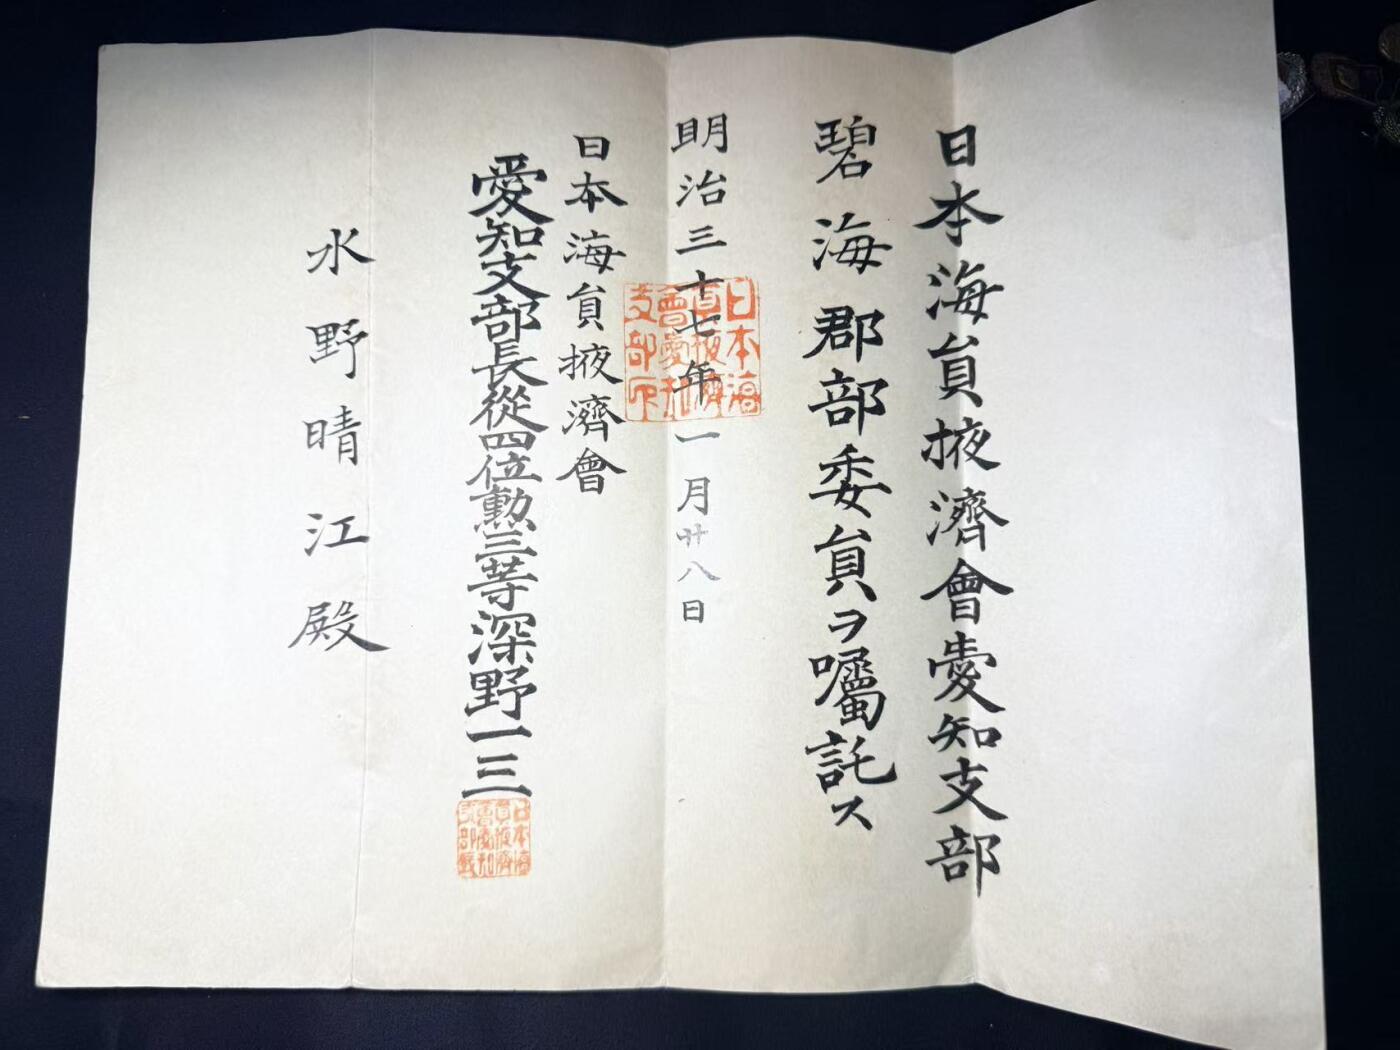 日本海員掖濟會愛知支部
碧海郡部委員ヲ囑託ス
明治三十七年一月廿八日
日本海員掖濟會
愛知支部長從四位勲三等深野一三
水野晴江殿
日本海
員掖濟
會愛知
支部印
日本海
員掖濟
會愛知